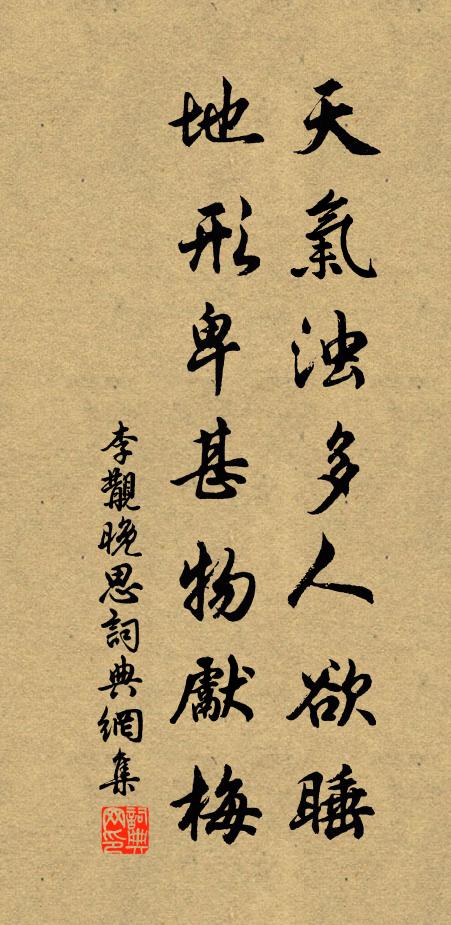 天氣浊多人欲睡
地形卑甚物獻梅
李覯晚思詞典網集
詞典网印